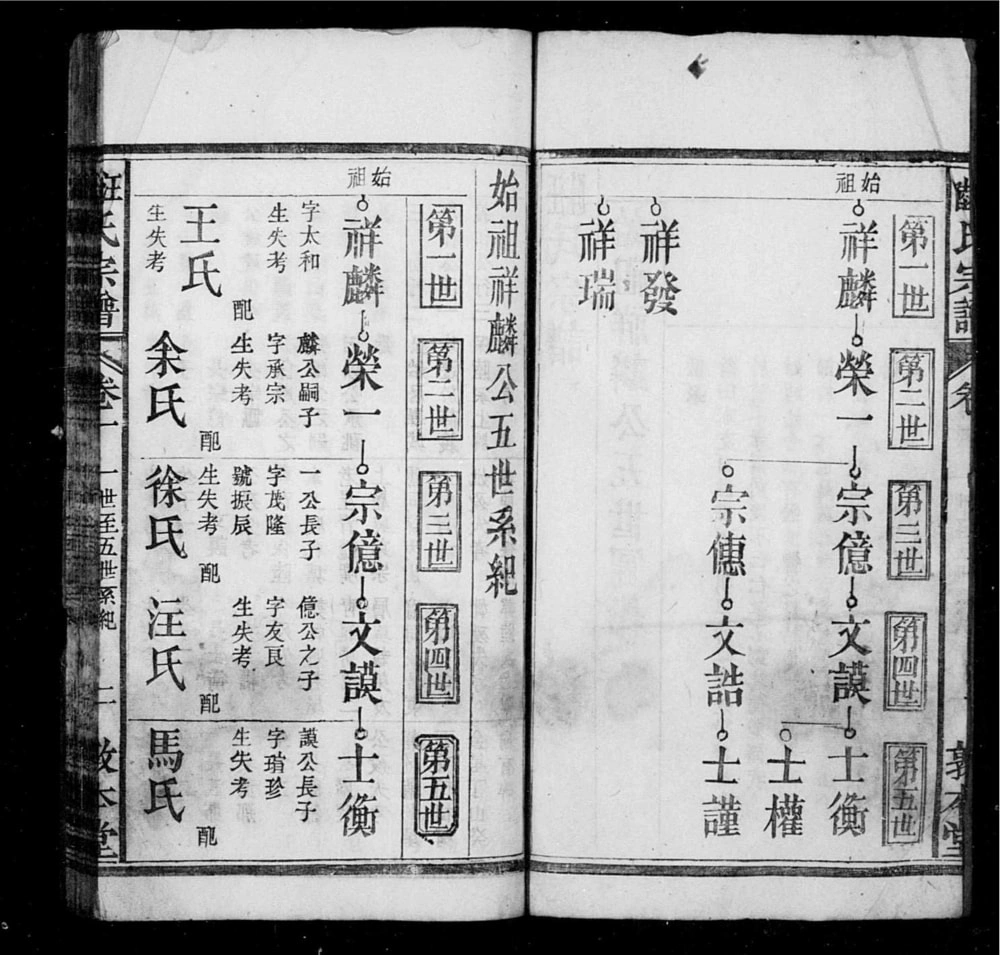 第一世
第二世
第三世
第四世
第五世
始祖
祥麟
榮一
宗億
文謨
士衡
士權
宗傳
文誥
士謹
祥發
祥瑞
始祖祥麟公五世系紀
第一世
第二世
第三世
第四世
第五世
始祖
祥麟
榮一
宗億
文謨
士衡
字太和
生失考
配
王氏
生失考
麟公嗣子
字承宗
生失考
配
余氏
一公長子
字茂隆
號振辰
生失考
配
徐氏
億公之子
字友良
生失考
配
汪氏
謨公長子
字珍
生失考
配
馬氏
氏宗譜
卷一
一世至五世系紀
二
敦本堂